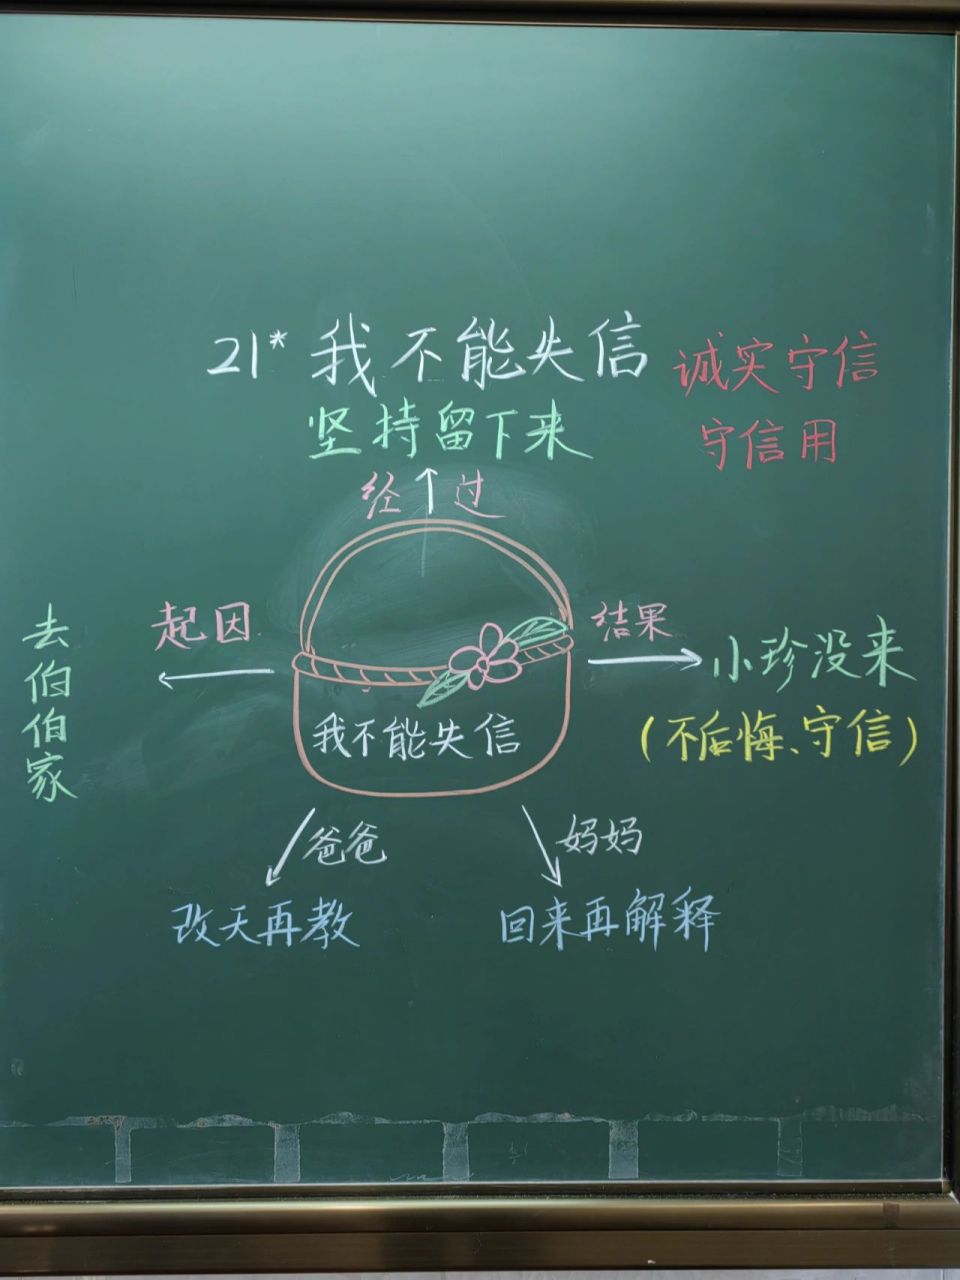 21* 我不能失信
诚实守信
守信用
坚持留下来
经过
起因
去伯伯家
结果
小珍没来
(不后悔、守信)
我不能失信
爸爸
改天再教
妈妈
回来再解释